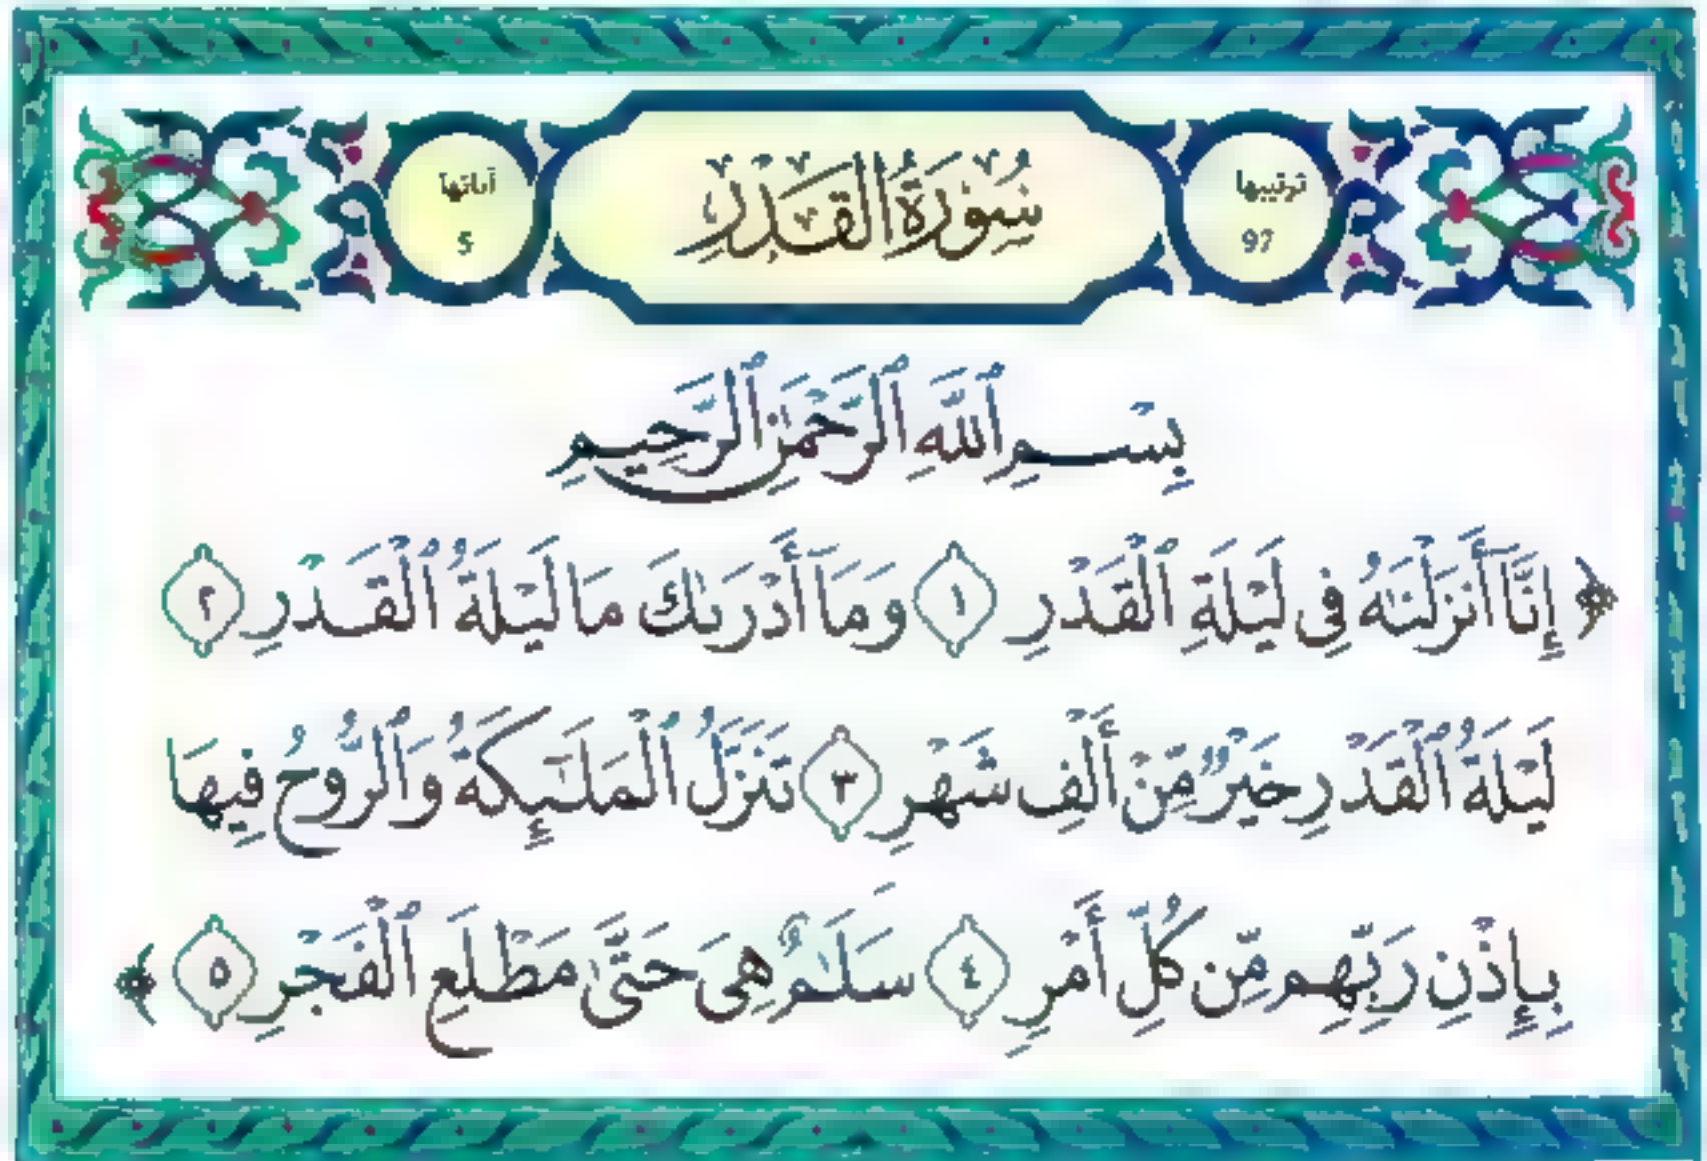 ترتيبها
97
سُوۡرَةُ الۡقَدۡرِ
آياتها
5
بِسۡمِ ٱللَّهِ ٱلرَّحۡمَٰنِ ٱلرَّحِيمِ
﴿ إِنَّآ أَنزَلۡنَٰهُ فِى لَيۡلَةِ ٱلۡقَدۡرِ ١ وَمَآ أَدۡرَىٰكَ مَا لَيۡلَةُ ٱلۡقَدۡرِ ٢
لَيۡلَةُ ٱلۡقَدۡرِ خَيۡرٞ مِّنۡ أَلۡفِ شَهۡرٖ ٣ تَنَزَّلُ ٱلۡمَلَٰٓئِكَةُ وَٱلرُّوحُ فِيهَا
بِإِذۡنِ رَبِّهِم مِّن كُلِّ أَمۡرٖ ٤ سَلَٰمٌ هِىَ حَتَّىٰ مَطۡلَعِ ٱلۡفَجۡرِ ٥ ﴾